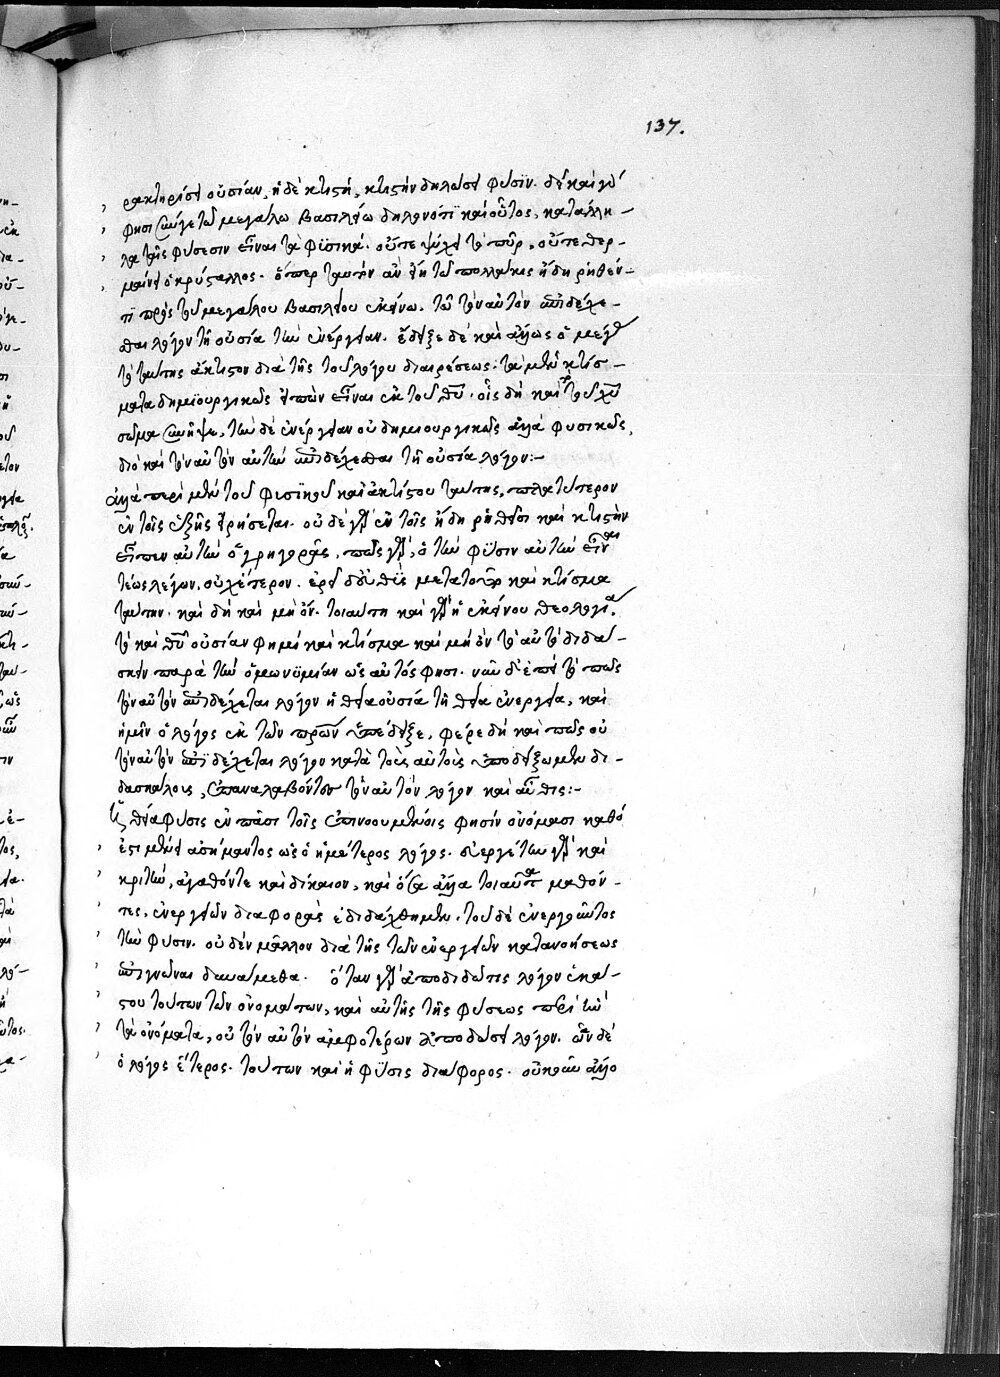 137.
ρακτηρίσει οὐσίαν, ἡ δὲ κτιστὴ, κτιστὴν δηλώσει φύσϊν. δεῖ καὶ γὰρ
φησι συνάγεται τῶ μεγάλω βασιλείω δηλονότι καὶ οὗτος, κατάλλη-
λα ταῖς φύσεσιν εἶναι τὰ φϋσικά. οὔτε ψύχει τὸ πῦρ, οὔτε θερ-
μαίνει ὁ κρύσταλλος. ὅπερ ταυτὸν ἂν εἴη τῶ πολλάκις ἤδη ῥηθέν-
τι πρὸς τοῦ μεγάλου βασιλείου ἐκείνω. τῶ τὸν αὐτὸν ἐπιδέχε-
σθαι λόγον τῆ οὐσία τὴν ἐνέργειαν. ἔδειξε δὲ καὶ ἄλλως ὁ μέγας
τὸ ταύτης ἄκτιστον διὰ τῆς τοῦ λόγου διαιρέσεως. τὰ μὲν κτίσ-
ματα δημιουργικῶς εἰπὼν εἶναι ἐκ τοῦ θεοῦ. οἷς δὴ καὶ τὸ τοῦ χυ
σῶμα συνῆψε, τὴν δὲ ἐνέργειαν οὐ δημιουργικῶς ἀλλὰ φυσικῶς,
διὸ καὶ τὸν αὐτὸν αὐτὴν ἐπιδέχεσθαι τῆ οὐσία λόγον:-
ἀλλὰ περὶ μὲν τοῦ φυσϊκοῦ καὶ ἀκτίστου ταύτης, πλατύτερον
ἐν τοῖς ἑξῆς εἰρήσεται. οὐδὲ γὰρ ἐν τοῖς ἤδη ῥηθεῖσι καὶ κτιστὴν
εἶπεν αὐτὴν ὁ γρηγορᾶς, πῶς γὰρ, ὁ τὴν φύσιν αὐτὴν εἶναι
τέως λέγων, οὐχ ἕτερον. ἐρεῖ δ' εὐθὺς μετὰ τοῦτο καὶ κτίσμα
ταύτην. καὶ δὴ καὶ μὴ ὄν. τοιαύτη καὶ γὰρ ἡ ἐκείνου θεολογία.
τὸ καὶ θεοῦ οὐσίαν φημὶ καὶ κτίσμα καὶ μὴ ὂν τὸ αὐτὸ διδά-
σκειν παρὰ τὴν ὁμωνϋμίαν ὡς αὐτός φησι. νῦν δ' ἐπεὶ τὸ πῶς
τὸν αὐτὸν ἐπιδέχεται λόγον ἡ θεία οὐσία τῆ θεία ἐνεργεία, καὶ
ἡμῖν ὁ λόγος ἐκ τῶν πατέρων ὑπέδειξε, φέρε δὴ καὶ πῶς οὐ
τὸν αὐτὸν ἐπιδέχεται λόγον κατὰ τοὺς αὐτοὺς ὑποδείξωμεν δι-
δασκάλους, ἐπαναλαβόντες τὸν αὐτὸν λόγον καὶ αὖθις:-
ἡ θεία φύσις ἐν πᾶσι τοῖς ἐπινοουμένοις φησὶν ὀνόμασι καθό
ἐστι μένει ἀσήμαντος ὡς ὁ ἡμέτερος λόγος. εὐεργέτην γὰρ καὶ
κριτὴν, ἀγαθόν τε καὶ δίκαιον, καὶ ὅσα ἄλλα τοιαῦτα μαθόν-
τες, ἐνεργειῶν διαφορὰς ἐδιδάχθημεν. τοῦ δὲ ἐνεργοῦντος
τὴν φύσιν. οὐδὲν μᾶλλον διὰ τῆς τῶν ἐνεργειῶν κατανοήσεως
ἐπιγνῶναι δυνάμεθα. ὅταν γὰρ ἀποδιδῶ τις λόγον ἑκά-
στου τούτων τῶν ὀνομάτων, καὶ αὐτῆς τῆς φύσεως περὶ ἣν
τὰ ὀνόματα, οὐ τὸν αὐτὸν ἀμφοτέρων ἀποδώσει λόγον. ὧν δὲ
ὁ λόγος ἕτερος. τούτων καὶ ἡ φϋσις διάφορος. οὐκοῦν ἄλλο